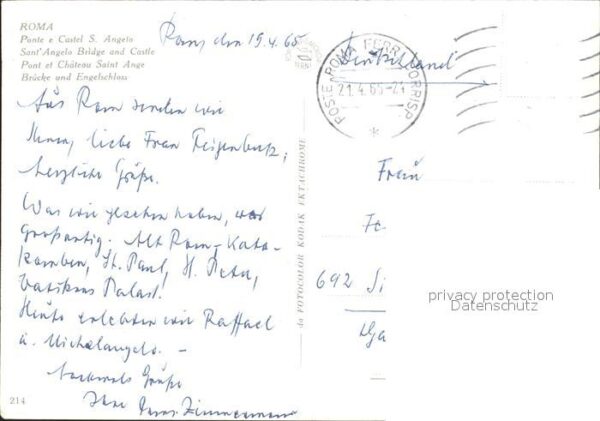 ROMA
Ponte e Castel S. Angelo
Sant'Angelo Bridge and Castle
Pont et Château Saint Ange
Brücke und Engelschloss
Rom, den 19.4.65
Deutschland
POSTE ROMA FERR. CORRISP.
21.4.65-21
Aus Rom senden wir
Ihnen, liebe Frau Feigenbutz,
herzliche Grüße.
Was wir gesehen haben, war
großartig. Alt Rom, Kata-
komben, St. Paul, St. Peter,
Vatikans Palast.
Heute erlebten wir Raffael
u. Michelangelo. –
Nochmals Grüße
Ihre Zimmermann
214
da FOTOCOLOR KODAK EKTACHROME
Frau
Fe
692 Si
privacy protection
Datenschutz